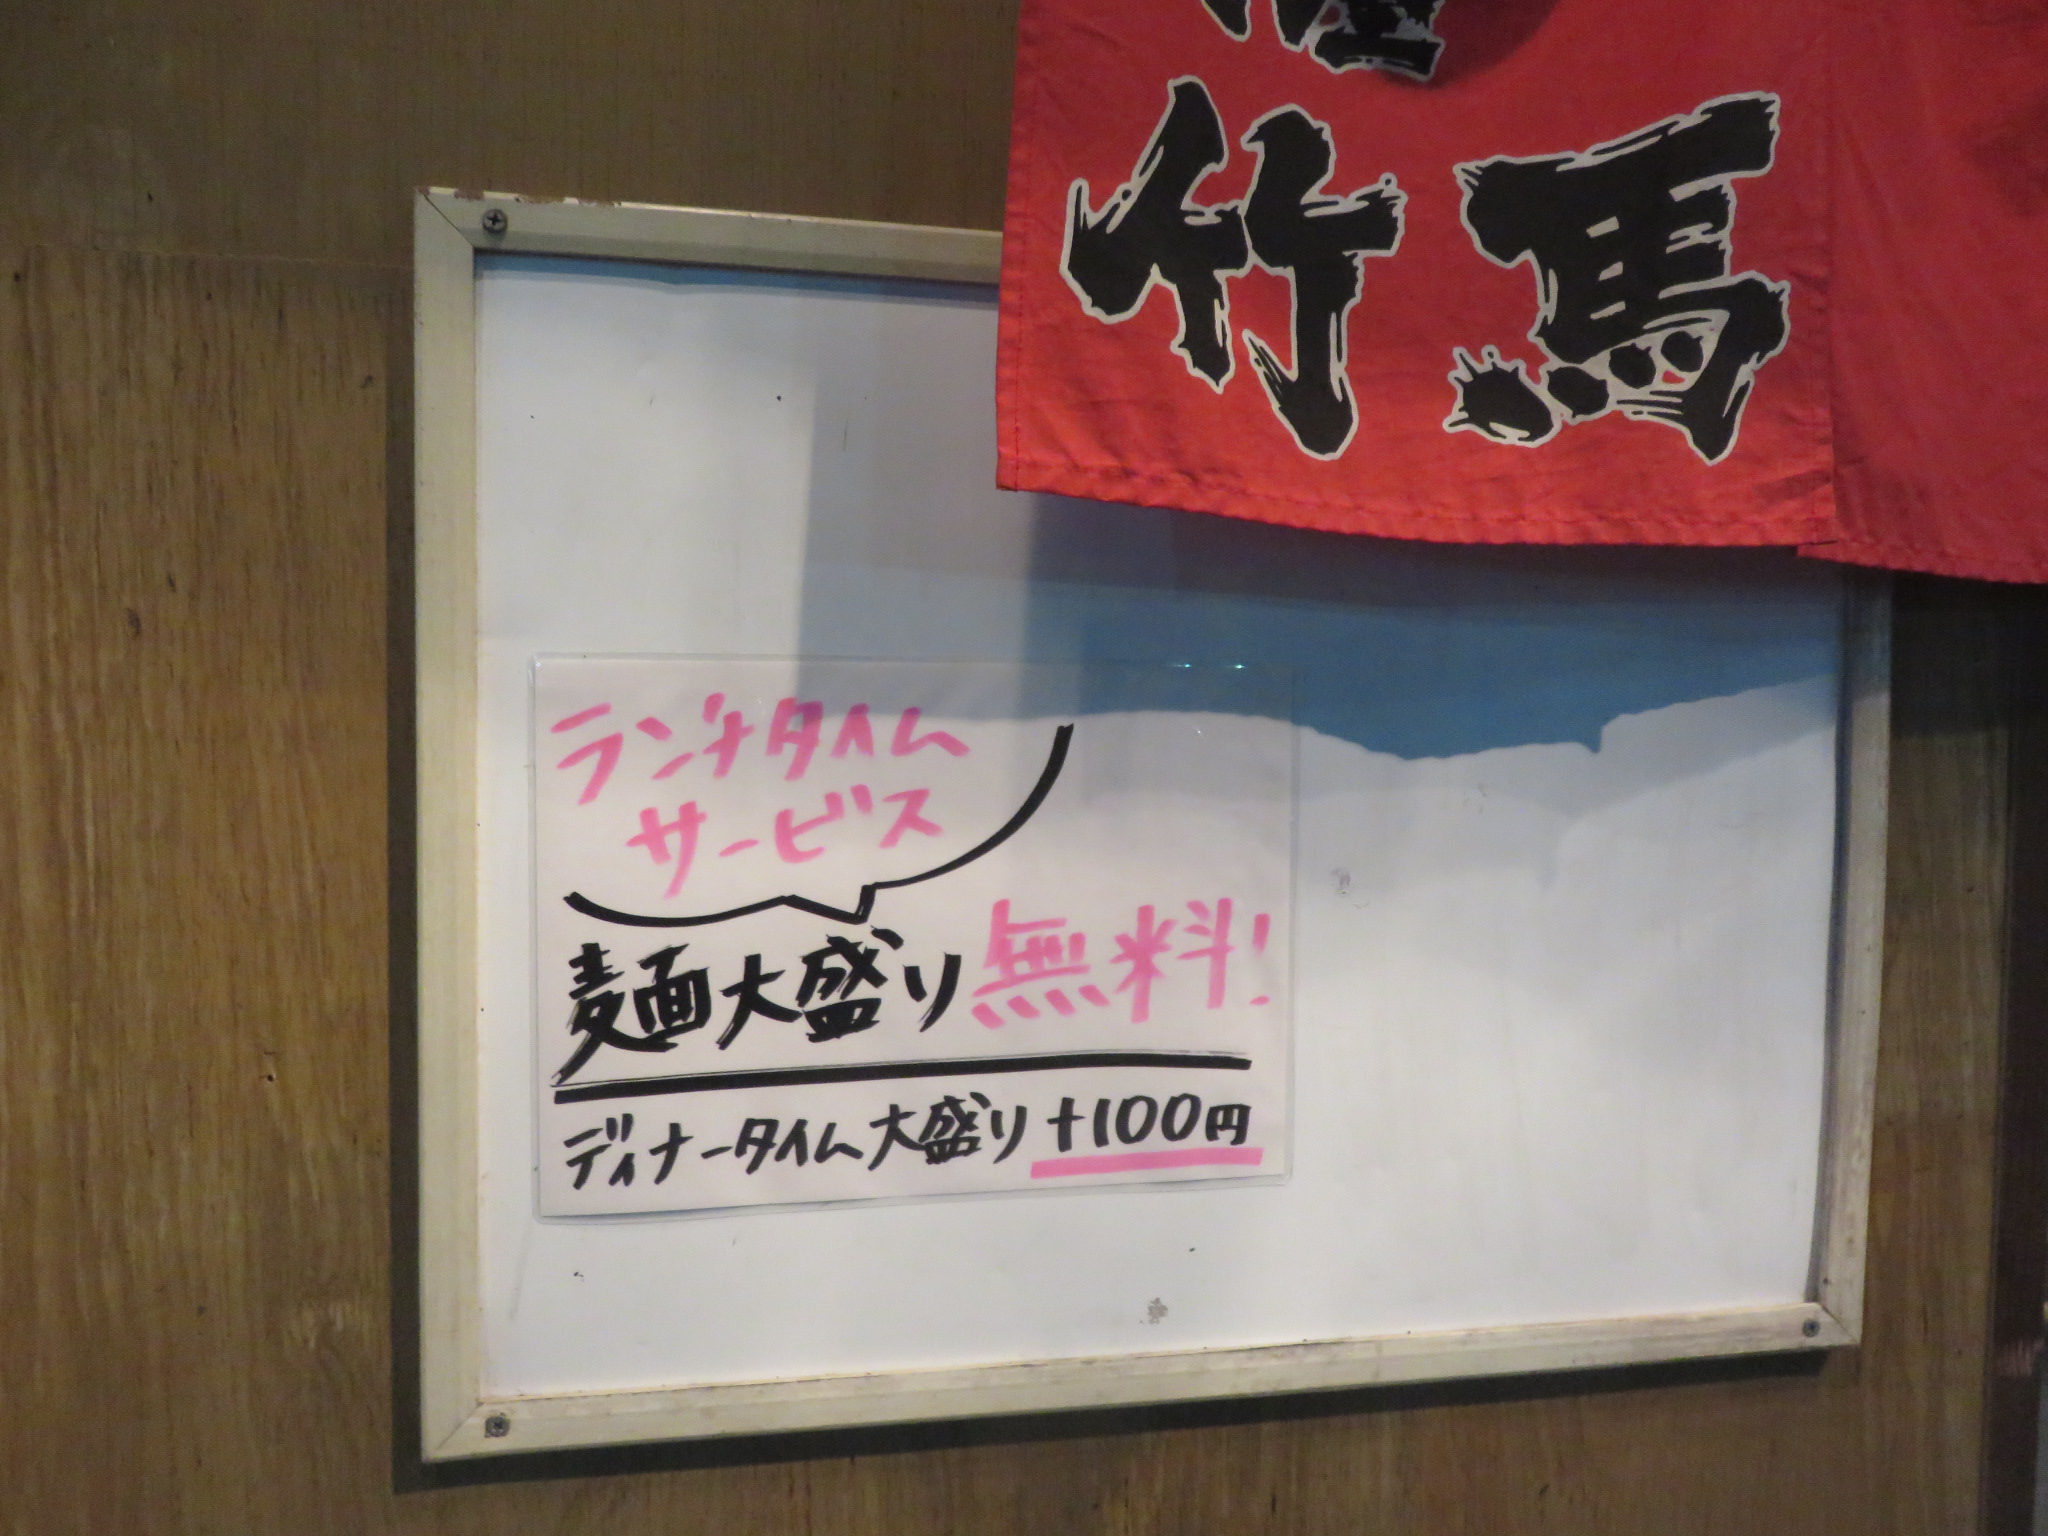 竹馬
ランチタイム
サービス
麺大盛り無料!
ディナータイム大盛り+100円